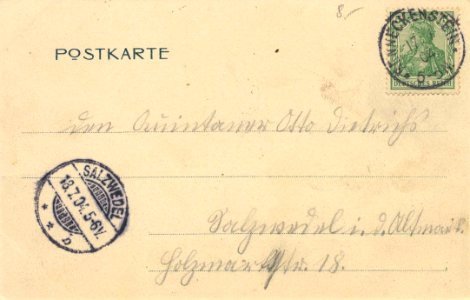 8.–
POSTKARTE
BENNECKENSTEIN
den Quintaner Otto Dietrichs
SALZWEDEL
18.7.04.5-6N.
b
Salzwedel i. d. Altmark
Holzmarktstr. 18.